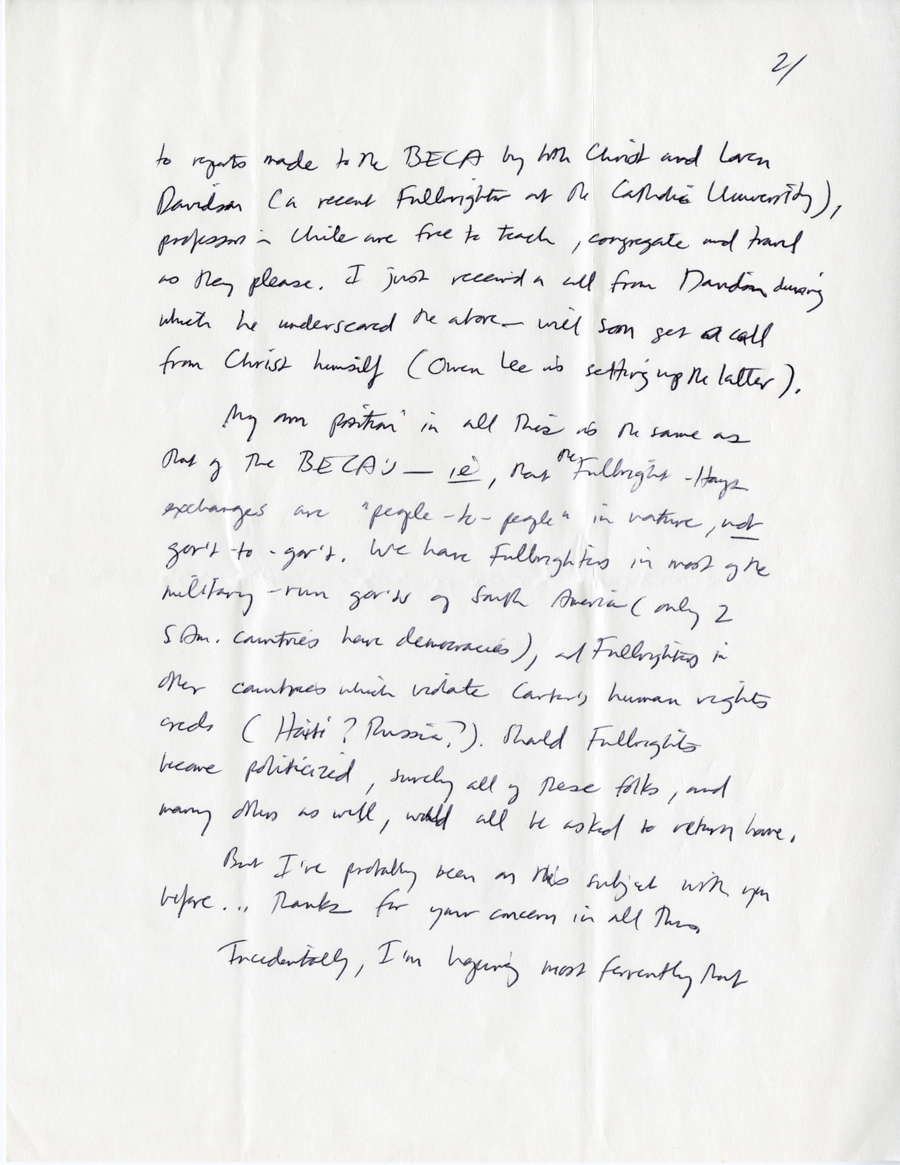 2/
to reports made to the BECA by both Christ and Loren
Davidson (a recent Fulbrighter at the Catholic University),
professors in Chile are free to teach, congregate and travel
as they please. I just received a call from Davidson during
which he underscored the above — will soon get a call
from Christ himself (Owen Lee is setting up the latter).
My own position in all this is the same as
that of the BECA's — ie, that the Fulbright-Hays
exchanges are "people-to-people" in nature, not
gov't-to-gov't. We have Fulbrighters in most of the
military-run gov'ts of South America (only 2
S Am. countries have democracies), and Fulbrighters in
other countries which violate Carter's human rights
creds (Haiti? Russia?). Should Fulbrights
become politicized, surely all of these folks, and
many others as well, would all be asked to return home.
But I've probably been on this subject with you
before... Thanks for your concern in all this.
Incidentally, I'm hoping most fervently that